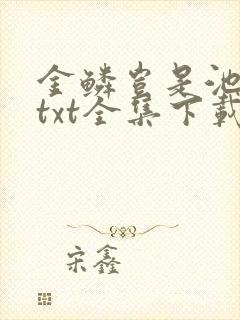 金鳞岂是池
txt全集下载
宋鑫